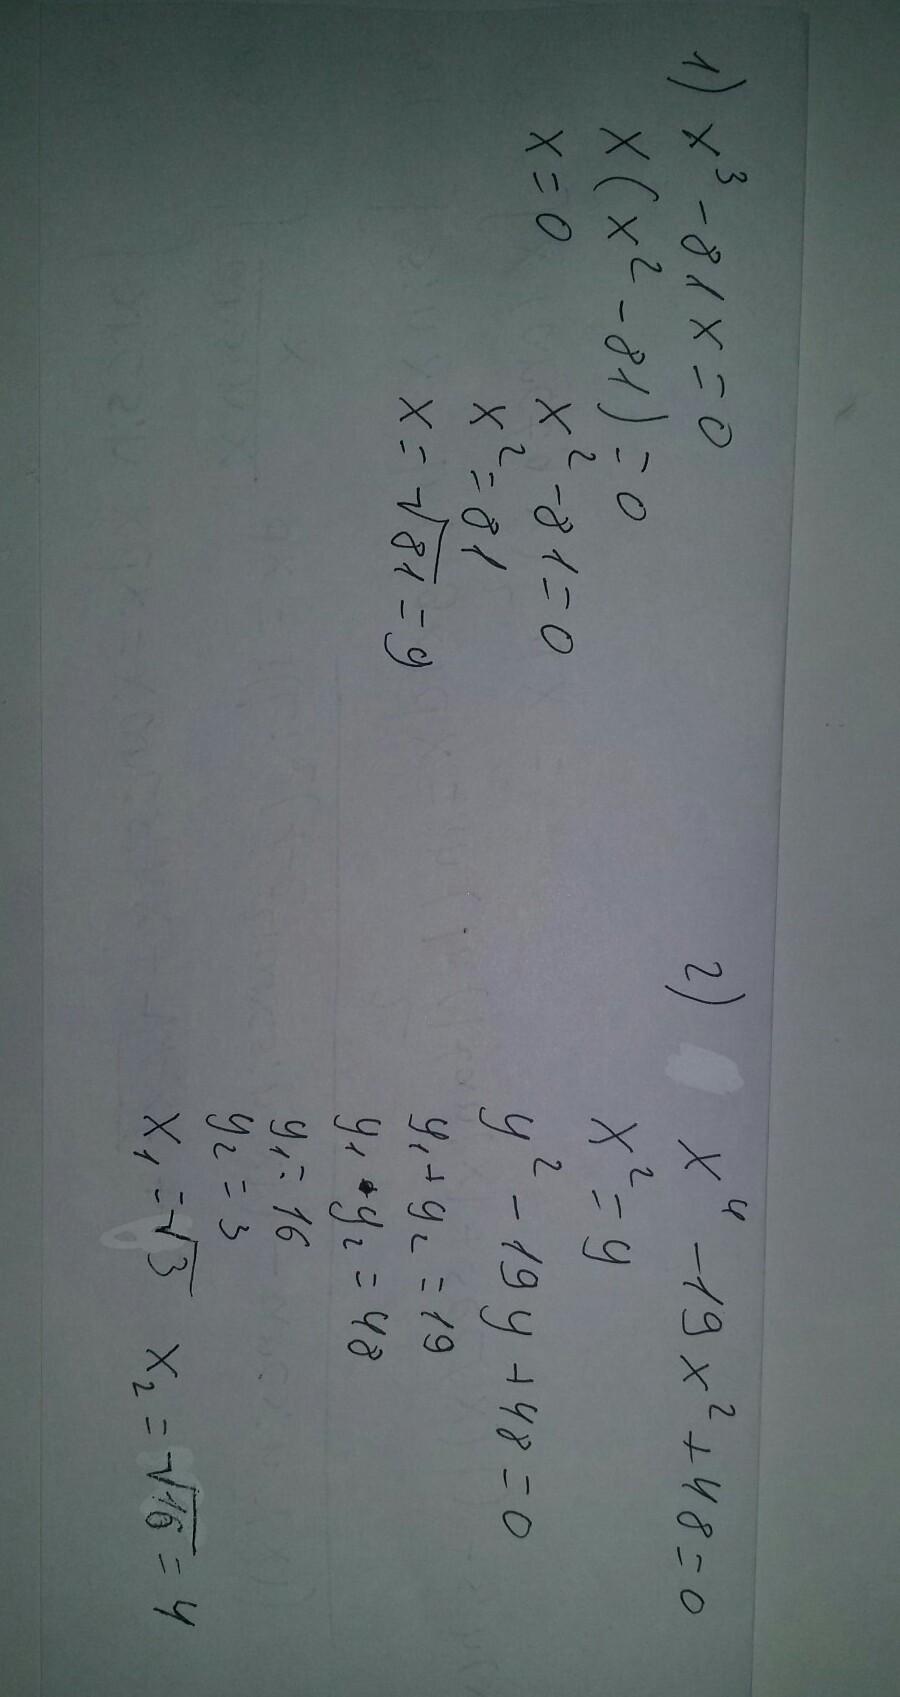 1) x³ - 81x = 0
x(x² - 81) = 0
x = 0
x² - 81 = 0
x² = 81
x = √81 = 9
2) x⁴ - 19x² + 48 = 0
x² = y
y² - 19y + 48 = 0
y₁ + y₂ = 19
y₁ • y₂ = 48
y₁ = 16
y₂ = 3
x₁ = √3 x₂ = √16 = 4